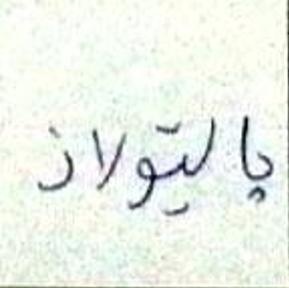 پالیتولاذ